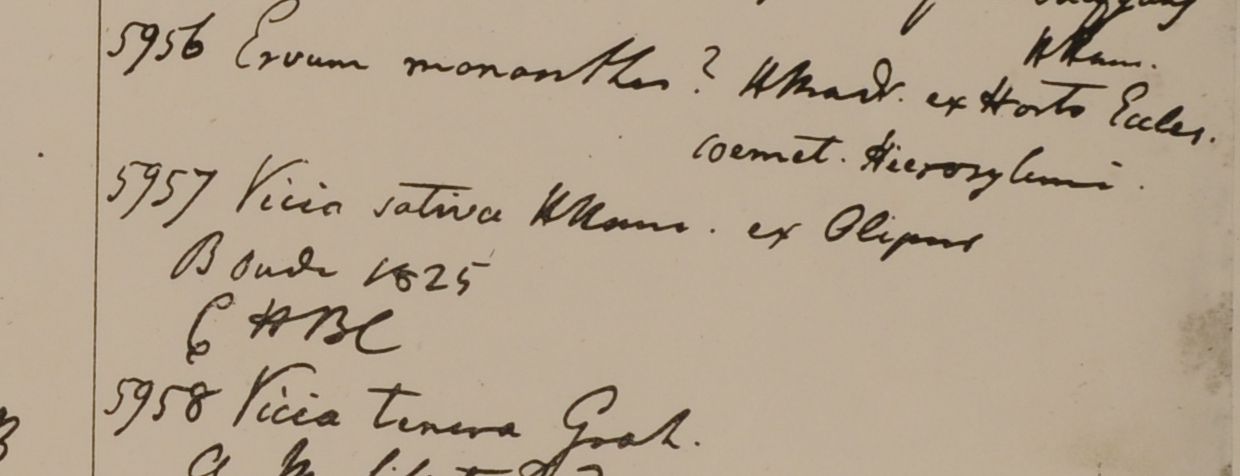 HHam.
5956 Ervum monanthos? HMadr. ex Horto Eccles.
coemet. Hierosylemi.
5957 Vicia sativa HHam. ex Olipur
B Oude 1825
C HBC
5958 Vicia tenera Grah.